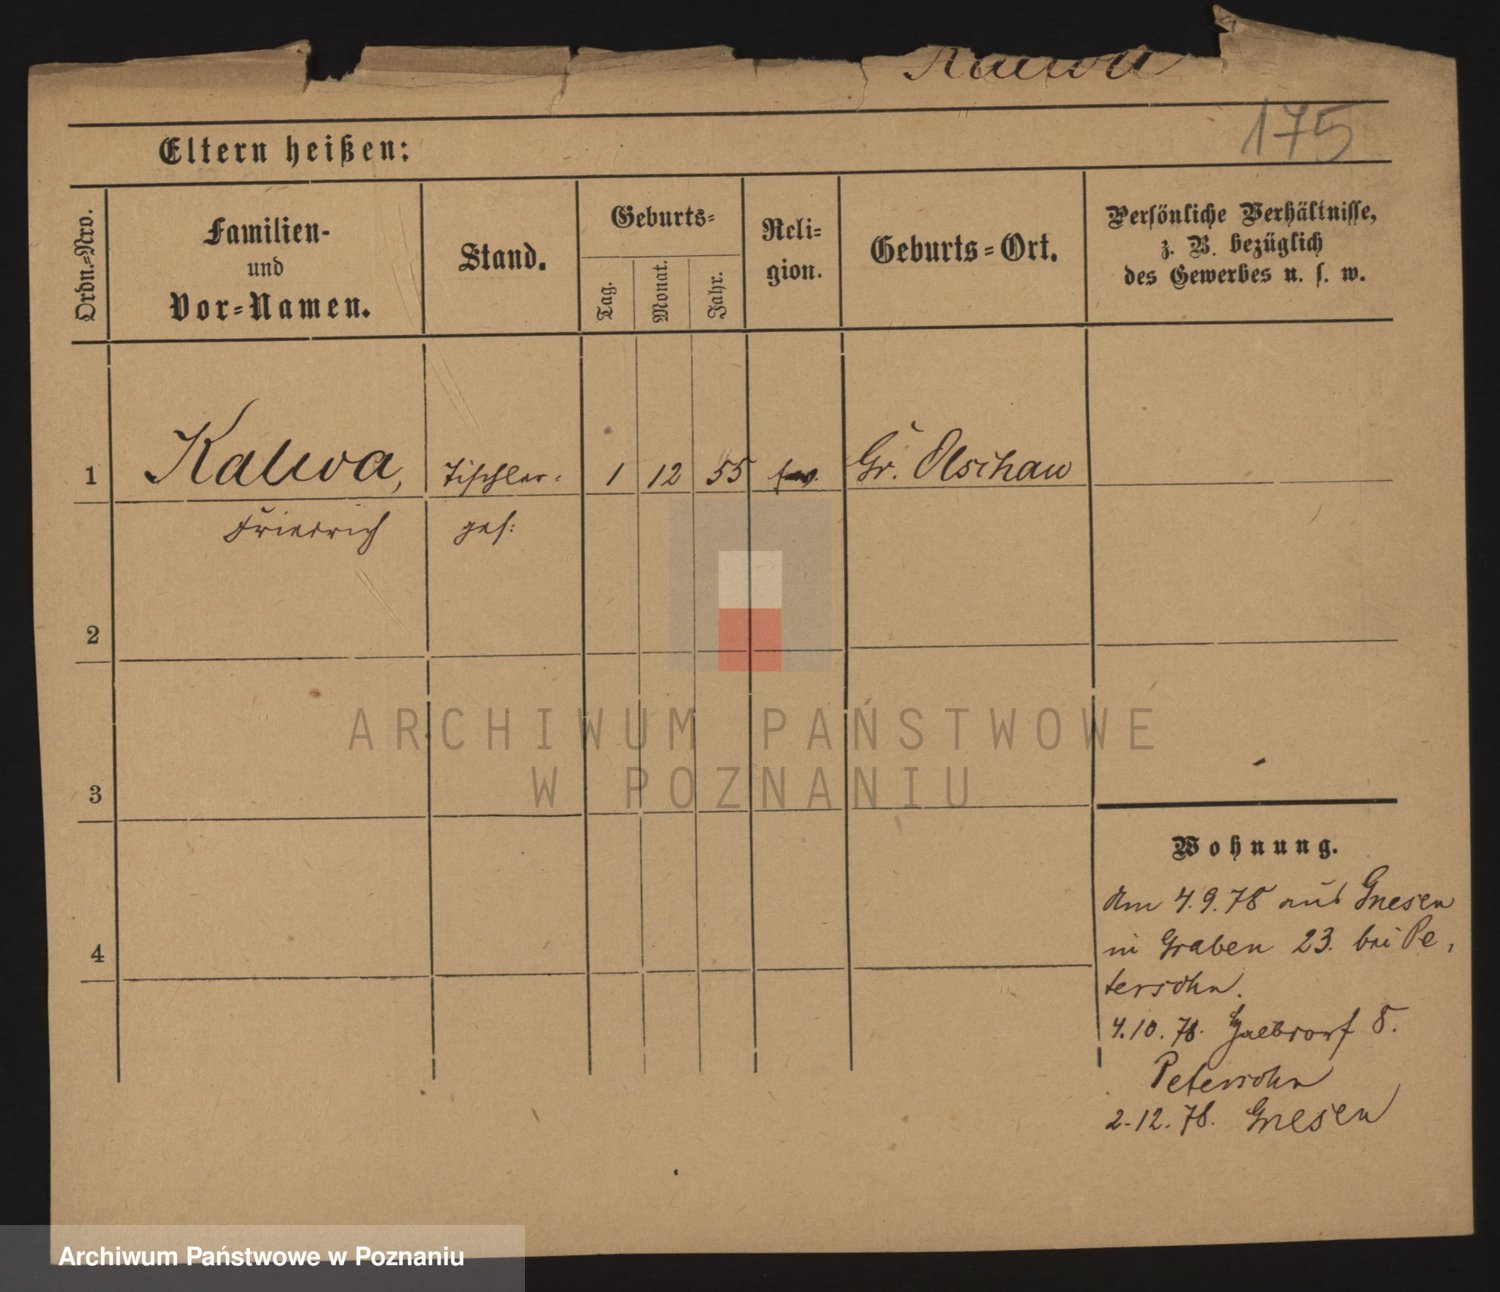 Kalwa
175
Eltern heißen:
Ordn.=Nro.
Familien-
und
Vor=Namen.
Stand.
Geburts=
Tag.
Monat.
Jahr.
Reli=
gion.
Geburts=Ort.
Persönliche Verhältnisse,
z. B. bezüglich
des Gewerbes u. s. w.
1
Kalwa,
Friedrich
Tischler=
ges:
1
12
55
ev.
Gr. Olschau
2
3
4
Wohnung.
Am 4.9.78 aus Gnesen
in Graben 23. bei Pe,
tersohn.
4.10.78. 8.
Petersohn
2.12.78. Gnesen
ARCHIWUM PAŃSTWOWE
W POZNANIU
Archiwum Państwowe w Poznaniu